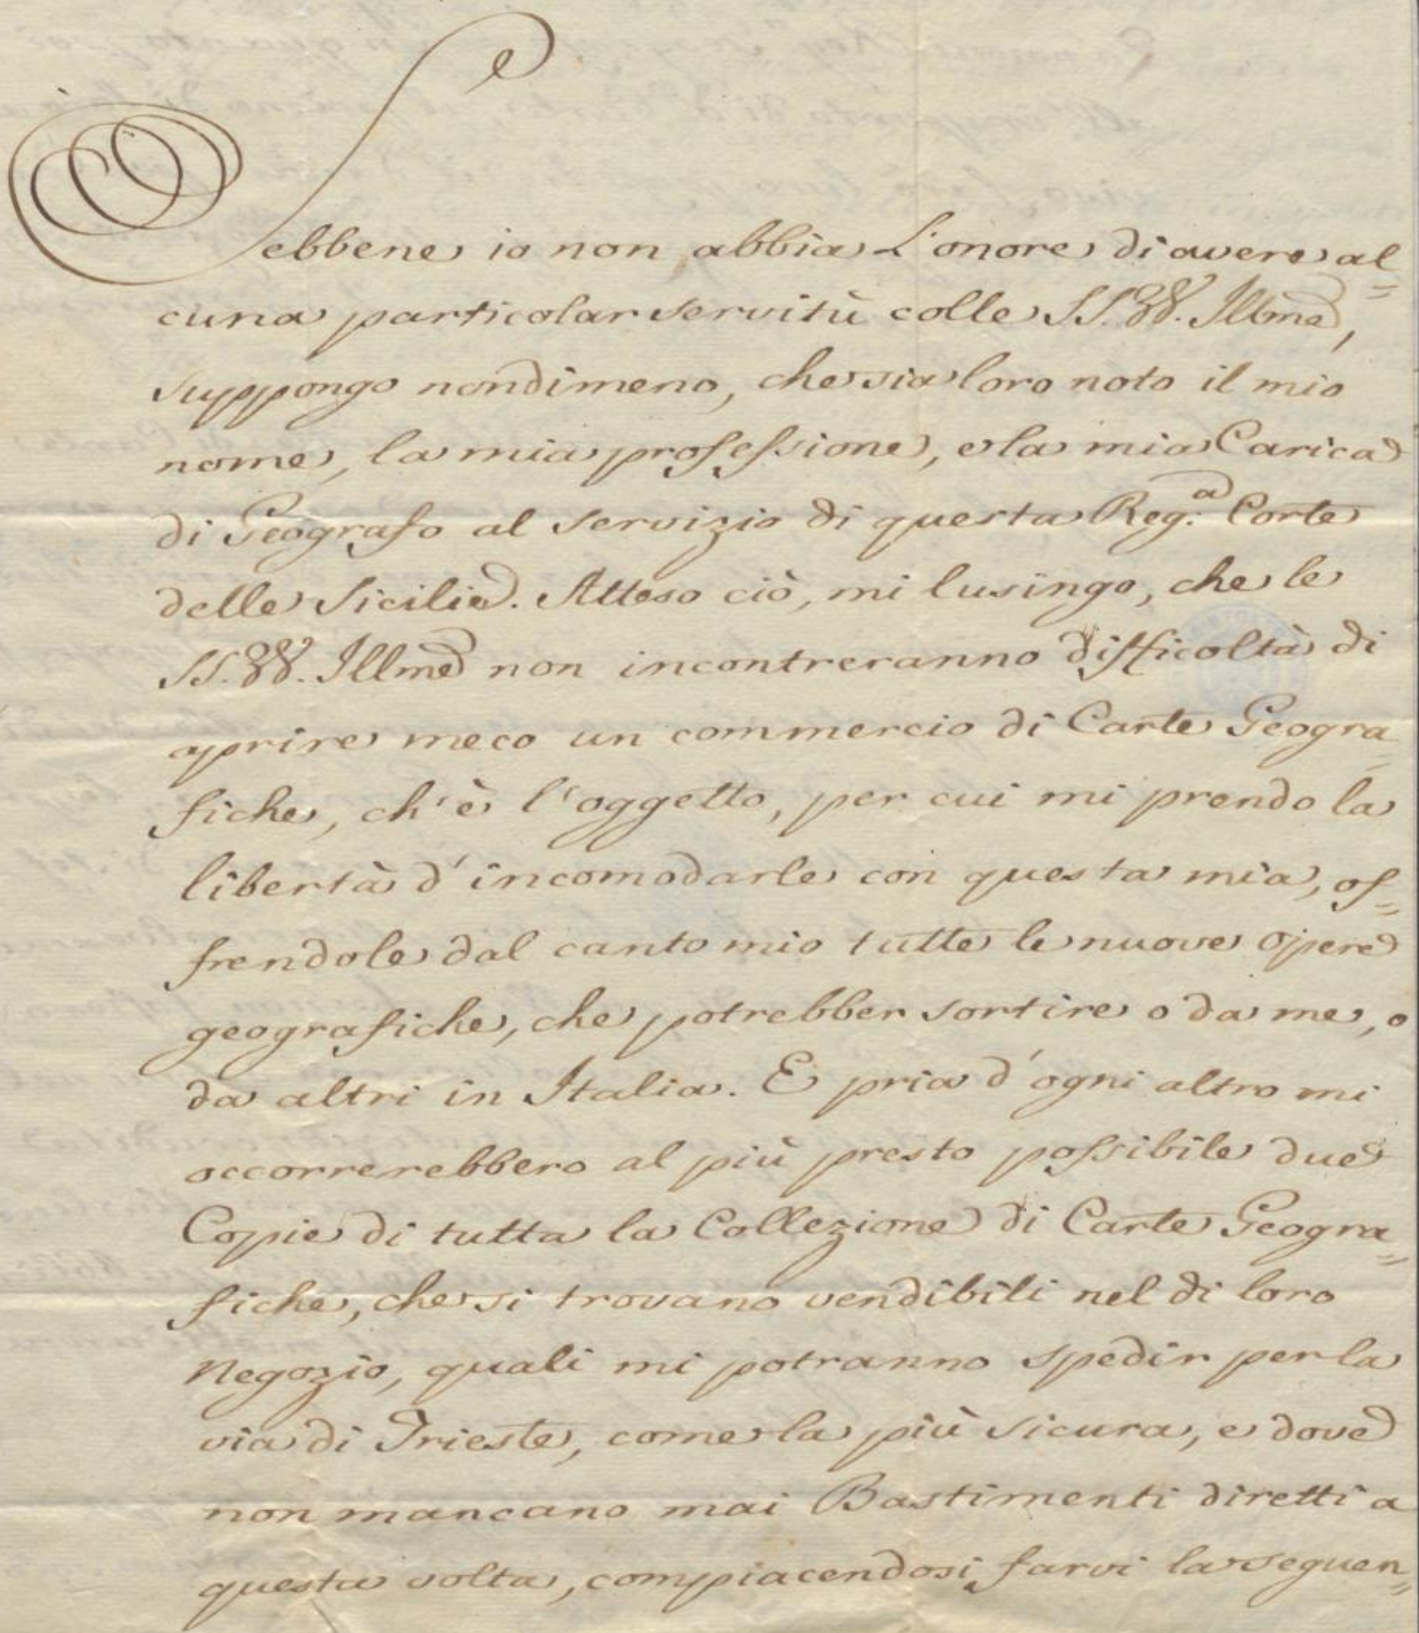 Sebbene io non abbia L'onore di avere al=
cuna particolar servitù colle SS. VV. Illme,
suppongo nondimeno, che sia loro noto il mio
nome, la mia professione, e la mia Carica
di Geografo al servizio di questa Reg.a Corte
delle Sicilie. Atteso ciò, mi lusingo, che le
SS. VV. Illme non incontreranno difficoltà di
aprire meco un commercio di Carte Geogra=
fiche, ch'è l'oggetto, per cui mi prendo la
libertà d'incomodarle con questa mia, of=
frendole dal canto mio tutte le nuove opere
geografiche, che potrebber sortire o da me, o
da altri in Italia. E pria d'ogni altro mi
occorrerebbero al più presto possibile due
Copie di tutta la Collezione di Carte Geogra=
fiche, che si trovano vendibili nel di loro
Negozio, quali mi potranno spedir per la
via di Trieste, come la più sicura, e dove
non mancano mai Bastimenti diretti a
questa volta, compiacendosi farvi la seguen=